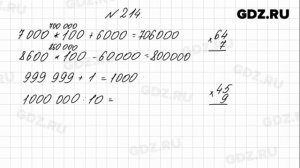 GDZ.RU
№ 214.
700 000
7 000 * 100 + 6000 = 706000
860 000
8600 * 100 - 60000 = 800000
999 999 + 1 = 1000
1000 000 : 10 =
× 64
7
× 45
9
GDZ.RU